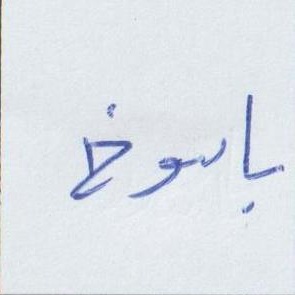 باسوخ